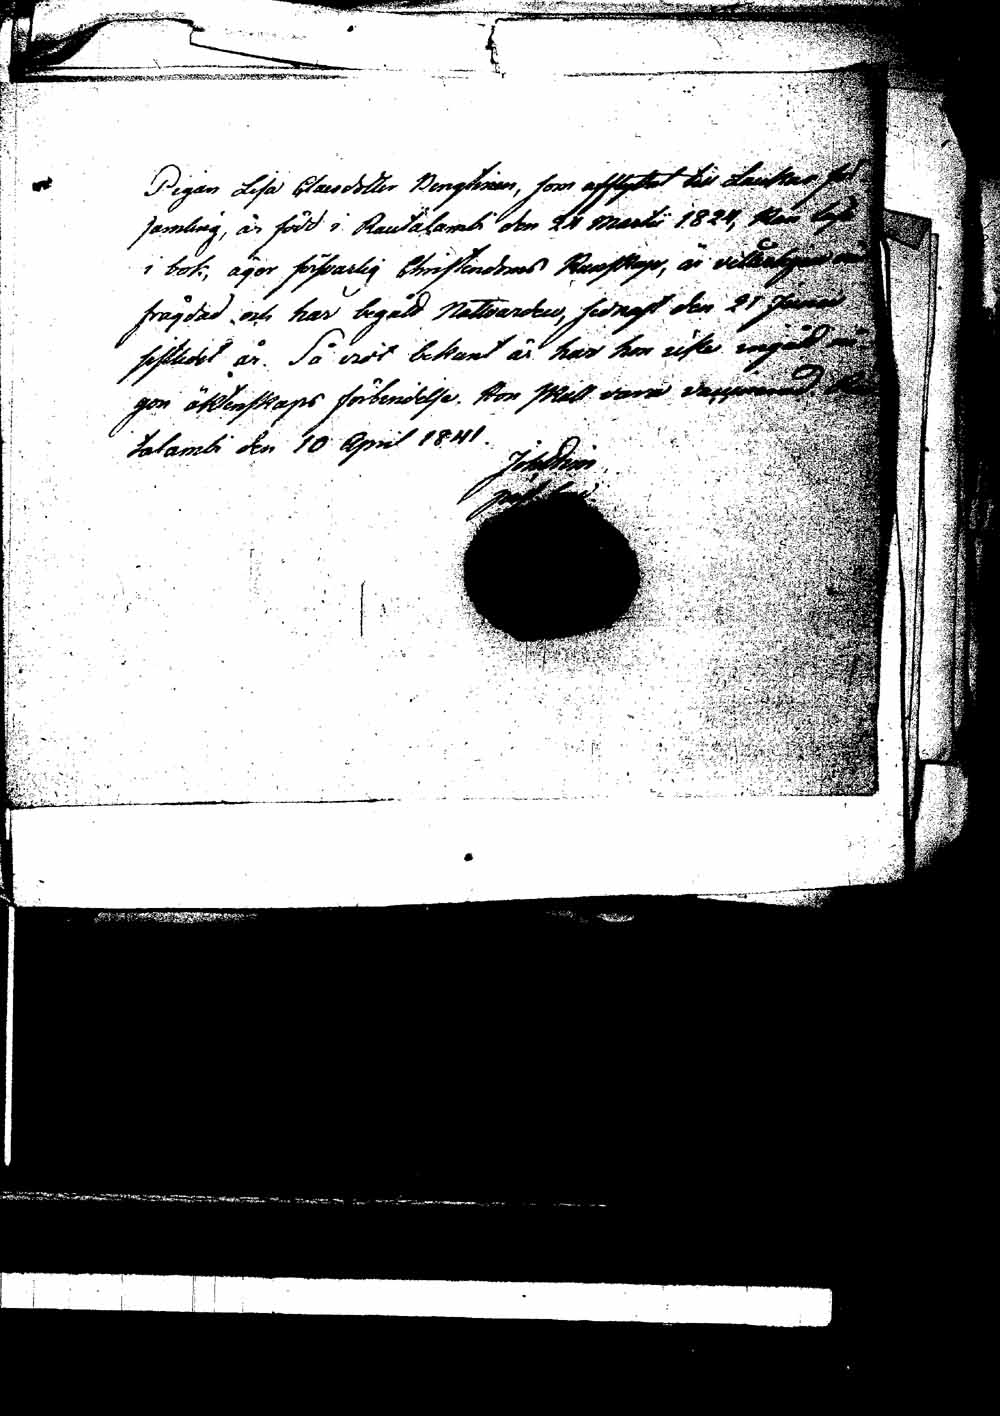 Pigan Lisa Claesdotter Bengtinen, som afflyttat till Laukas för
samling, är född i Rautalambi den 24 Martii 1824, kan läsa
i bok, äger försvarlig Christendoms Kunskap, är
frägdad och har begådt Nattvarden, sednast den 21 Junii
sistledet år. Så vidt bekant är har hon icke ingådt nå
gon äktenskaps förbindelse. Hon skall vara vaccinerad. Rau
talambi den 10 April 1841.